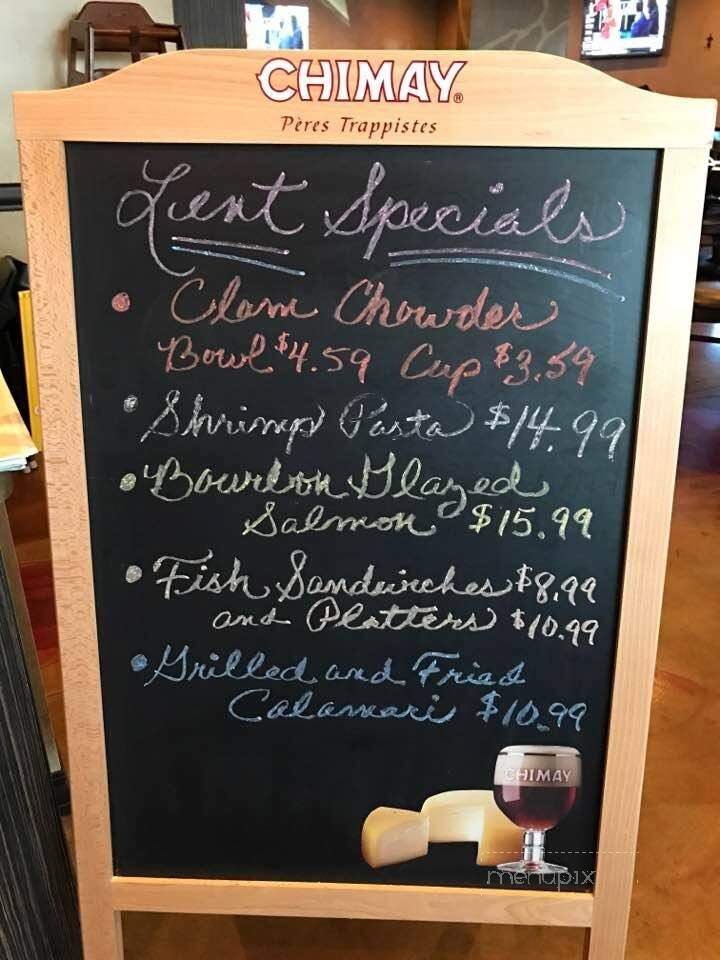 CHIMAY®
Pères Trappistes
Lent Specials
• Clam Chowder
Bowl $4.59 Cup $3.59
• Shrimp Pasta $14.99
• Bourbon Glazed
Salmon $15.99
• Fish Sandwiches $8.99
and Platters $10.99
• Grilled and Fried
Calamari $10.99
CHIMAY
menupix